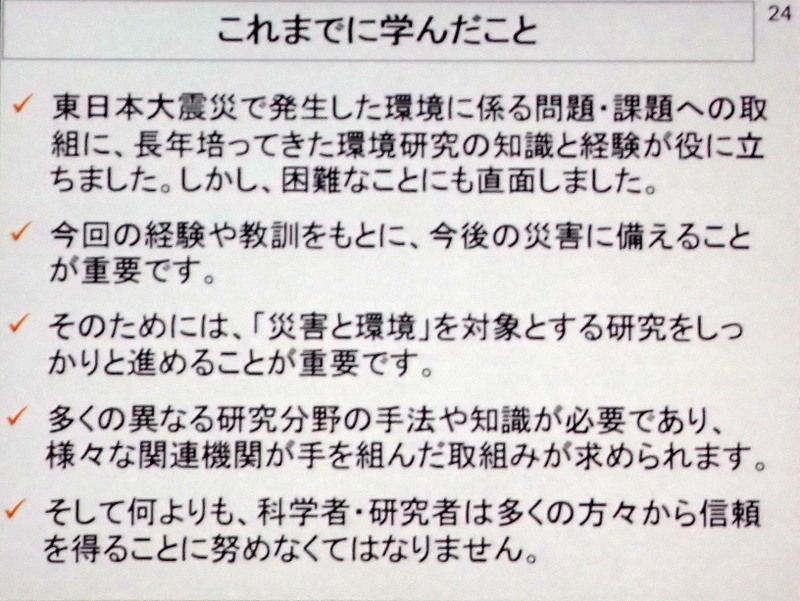 24
これまでに学んだこと
✓ 東日本大震災で発生した環境に係る問題・課題への取
組に、長年培ってきた環境研究の知識と経験が役に立
ちました。しかし、困難なことにも直面しました。
✓ 今回の経験や教訓をもとに、今後の災害に備えること
が重要です。
✓ そのためには、「災害と環境」を対象とする研究をしっ
かりと進めることが重要です。
✓ 多くの異なる研究分野の手法や知識が必要であり、
様々な関連機関が手を組んだ取組みが求められます。
✓ そして何よりも、科学者・研究者は多くの方々から信頼
を得ることに努めなくてはなりません。